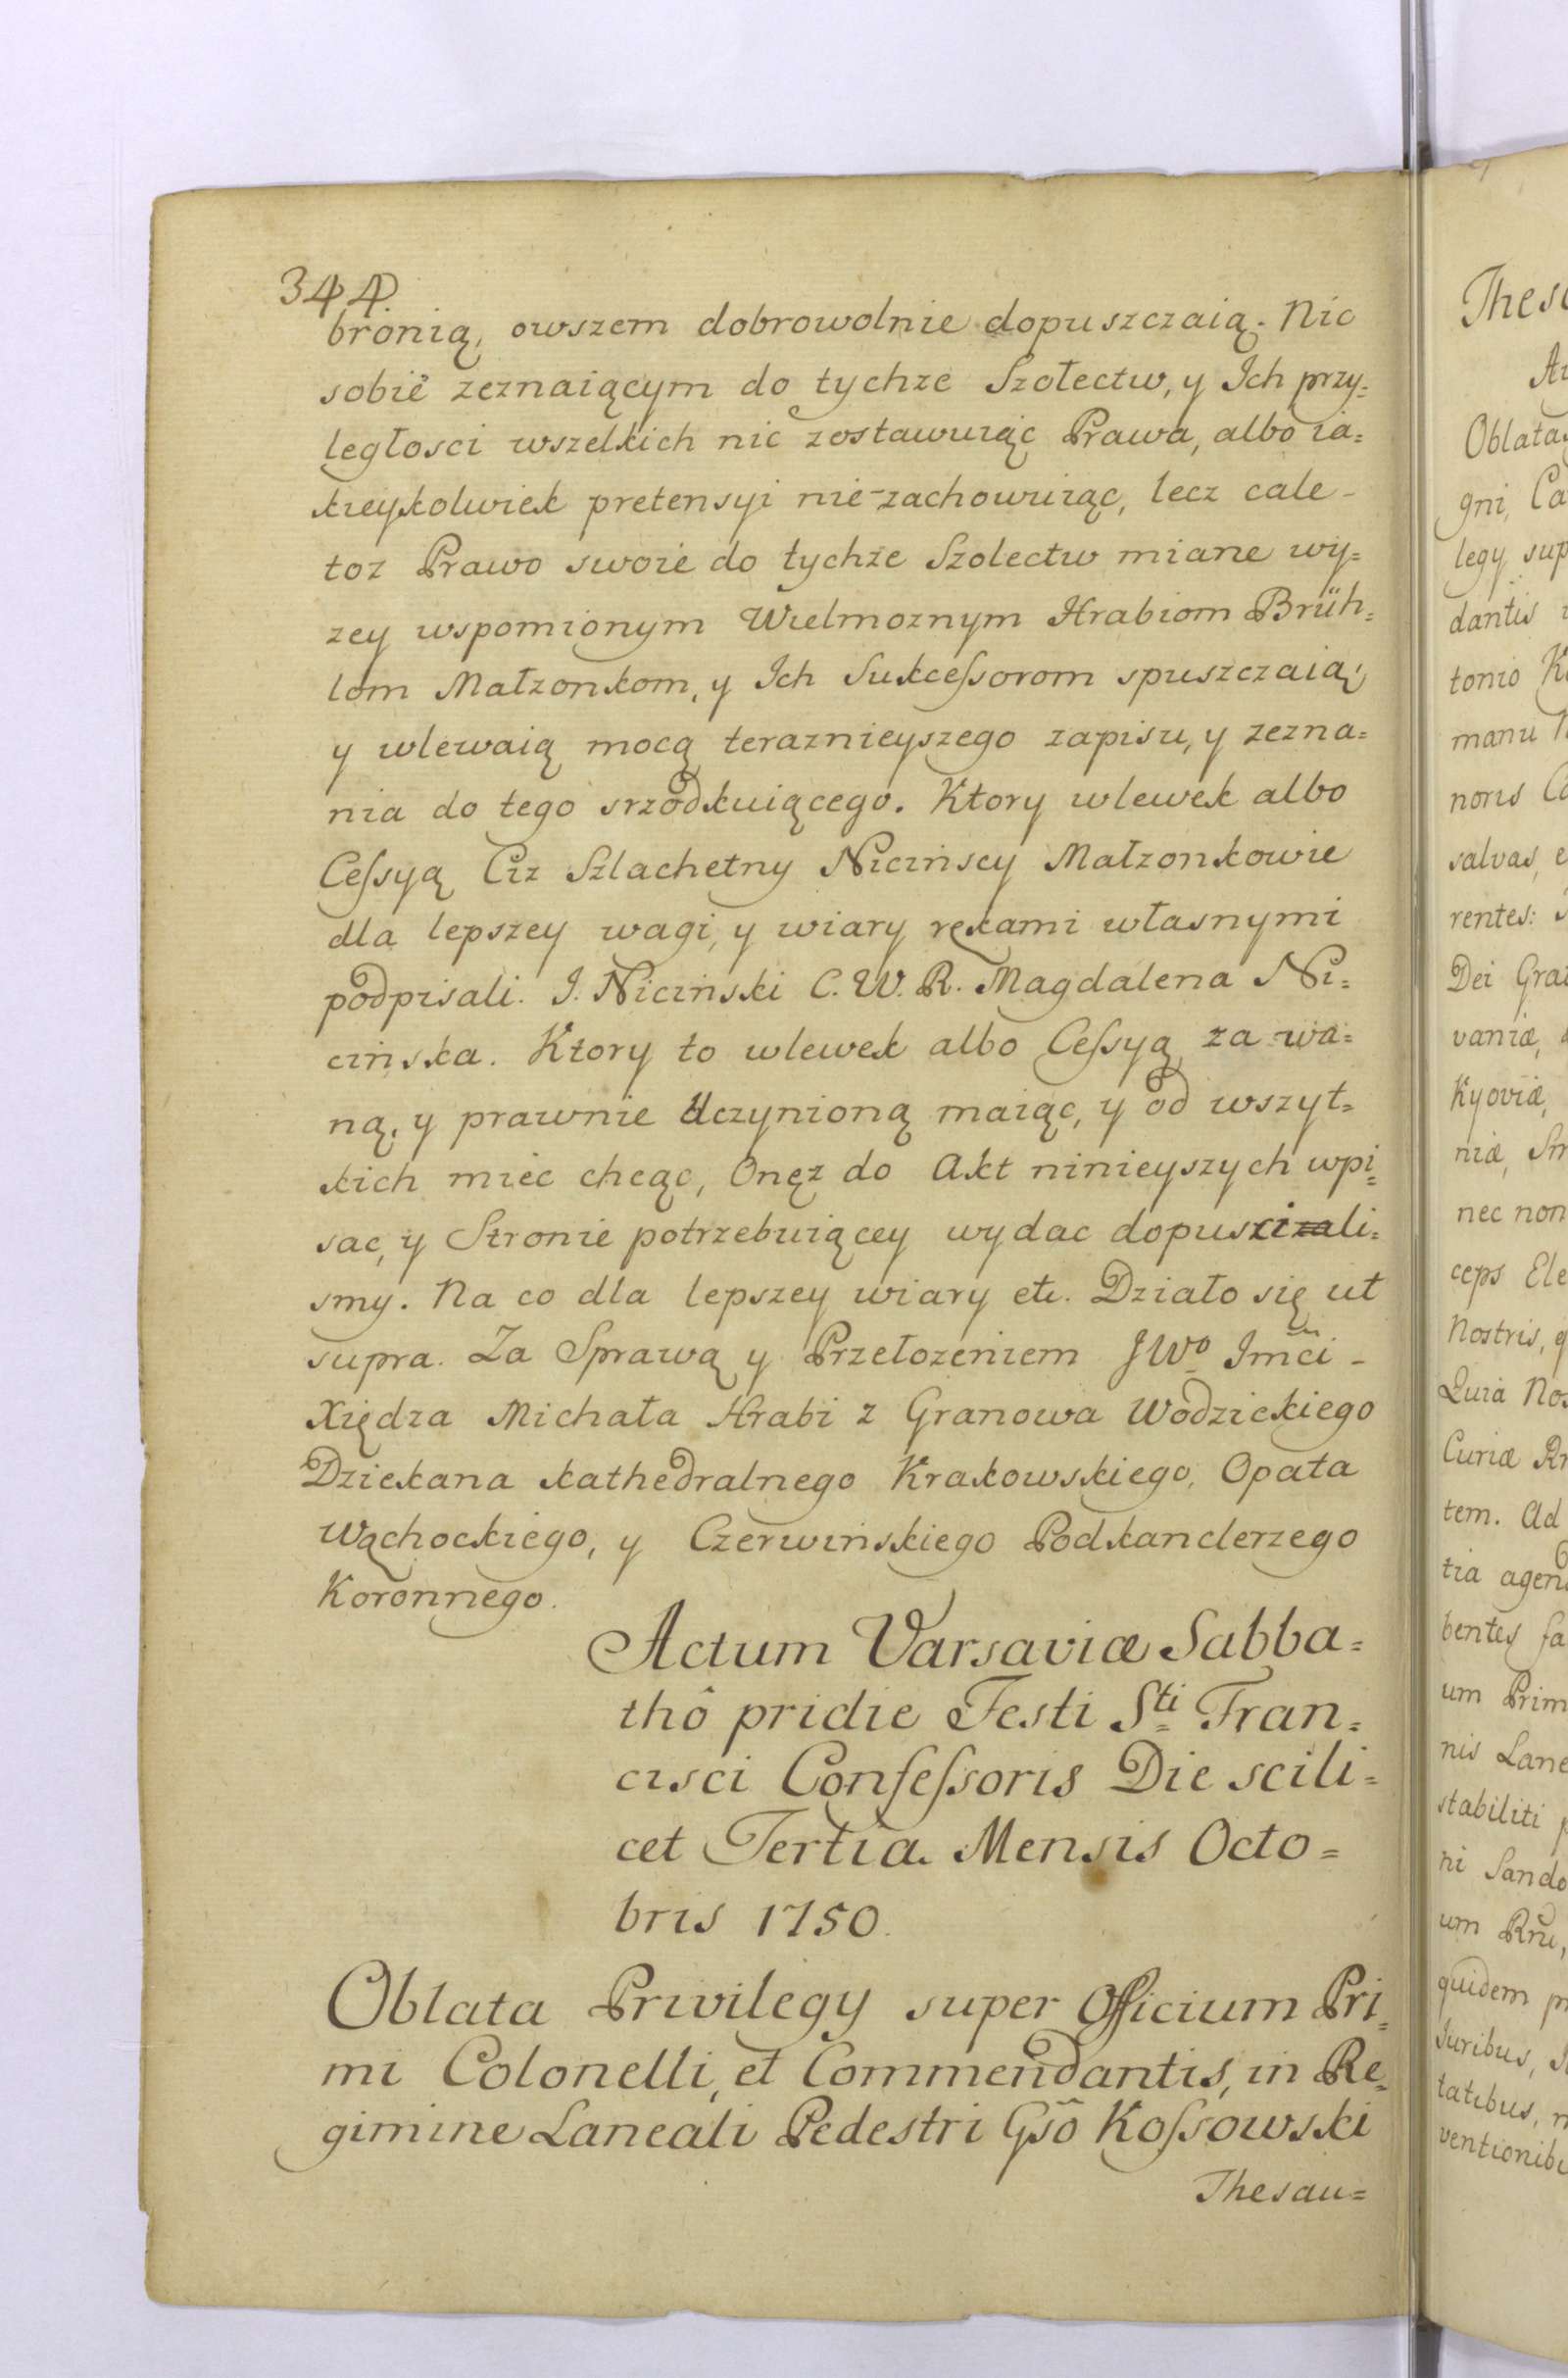 344
bronią, owszem dobrowolnie dopuszczaią. Nic
sobie zeznaiącym do tychze Szołectw, y Ich przy=
ległosci wszelkich nic zostawuiąc Prawa, albo ia=
kieykolwiek pretensyi nie-zachowuiąc, lecz cale-
toz Prawo swoie do tychże Szolectw miane wy=
zey wspomionym Wielmoznym Hrabiom Brüh=
lom Małzonkom, y Ich Sukceſsorom spuszczaią,
y wlewaią mocą teraznieyszego zapisu, y zezna=
nia do tego srzodkuiącego. Ktory wlewek albo
Ceſsyą Ciz Szlachetny Nicińscy Małzonkowie
dla lepszey wagi, y wiary rękami własnymi
podpisali. J. Niciński C. W. R. Magdalena Ni=
cińska. Ktory to wlewek albo Ceſsyą za wa=
ną, y prawnie Uczynioną maiąc, y od wszyt=
kich miec chcąc, Onęz do Akt ninieyszych wpi=
sac, y Stronie potrzebuiącey wydac dopuscizali=
smy. Na co dla lepszey wiary etc. Działo się ut
supra. Za Sprawą y Przełozeniem JWo Imci-
Xiędza Michała Hrabi z Granowa Wodzickiego
Dziekana kathedralnego Krakowskiego, Opata
Wąchockiego, y Czerwińskiego Podkanclerzego
Koronnego.
Actum Varsaviæ Sabba=
thô pridie Festi Sti Fran=
cisci Confeſsoris Die scili=
cet Tertia Mensis Octo=
bris 1750.
Oblata Privilegy super Officium Pri=
mi Colonelli, et Commendantis, in Re=
gimine Laneali Pedestri Gsõ Koſsowski
Thesau=
Oblatas
gni,
legy
dantis
tonio
manu
noris
salvas,
rentes:
Dei
vaniæ,
Kyoviæ,
niæ,
nec non
ceps
Nostris,
Quia
Curiæ
tem. Ad
tia
bentes
um
nis
stabiliti
ni
um
quidem
Juribus,
tatibus,